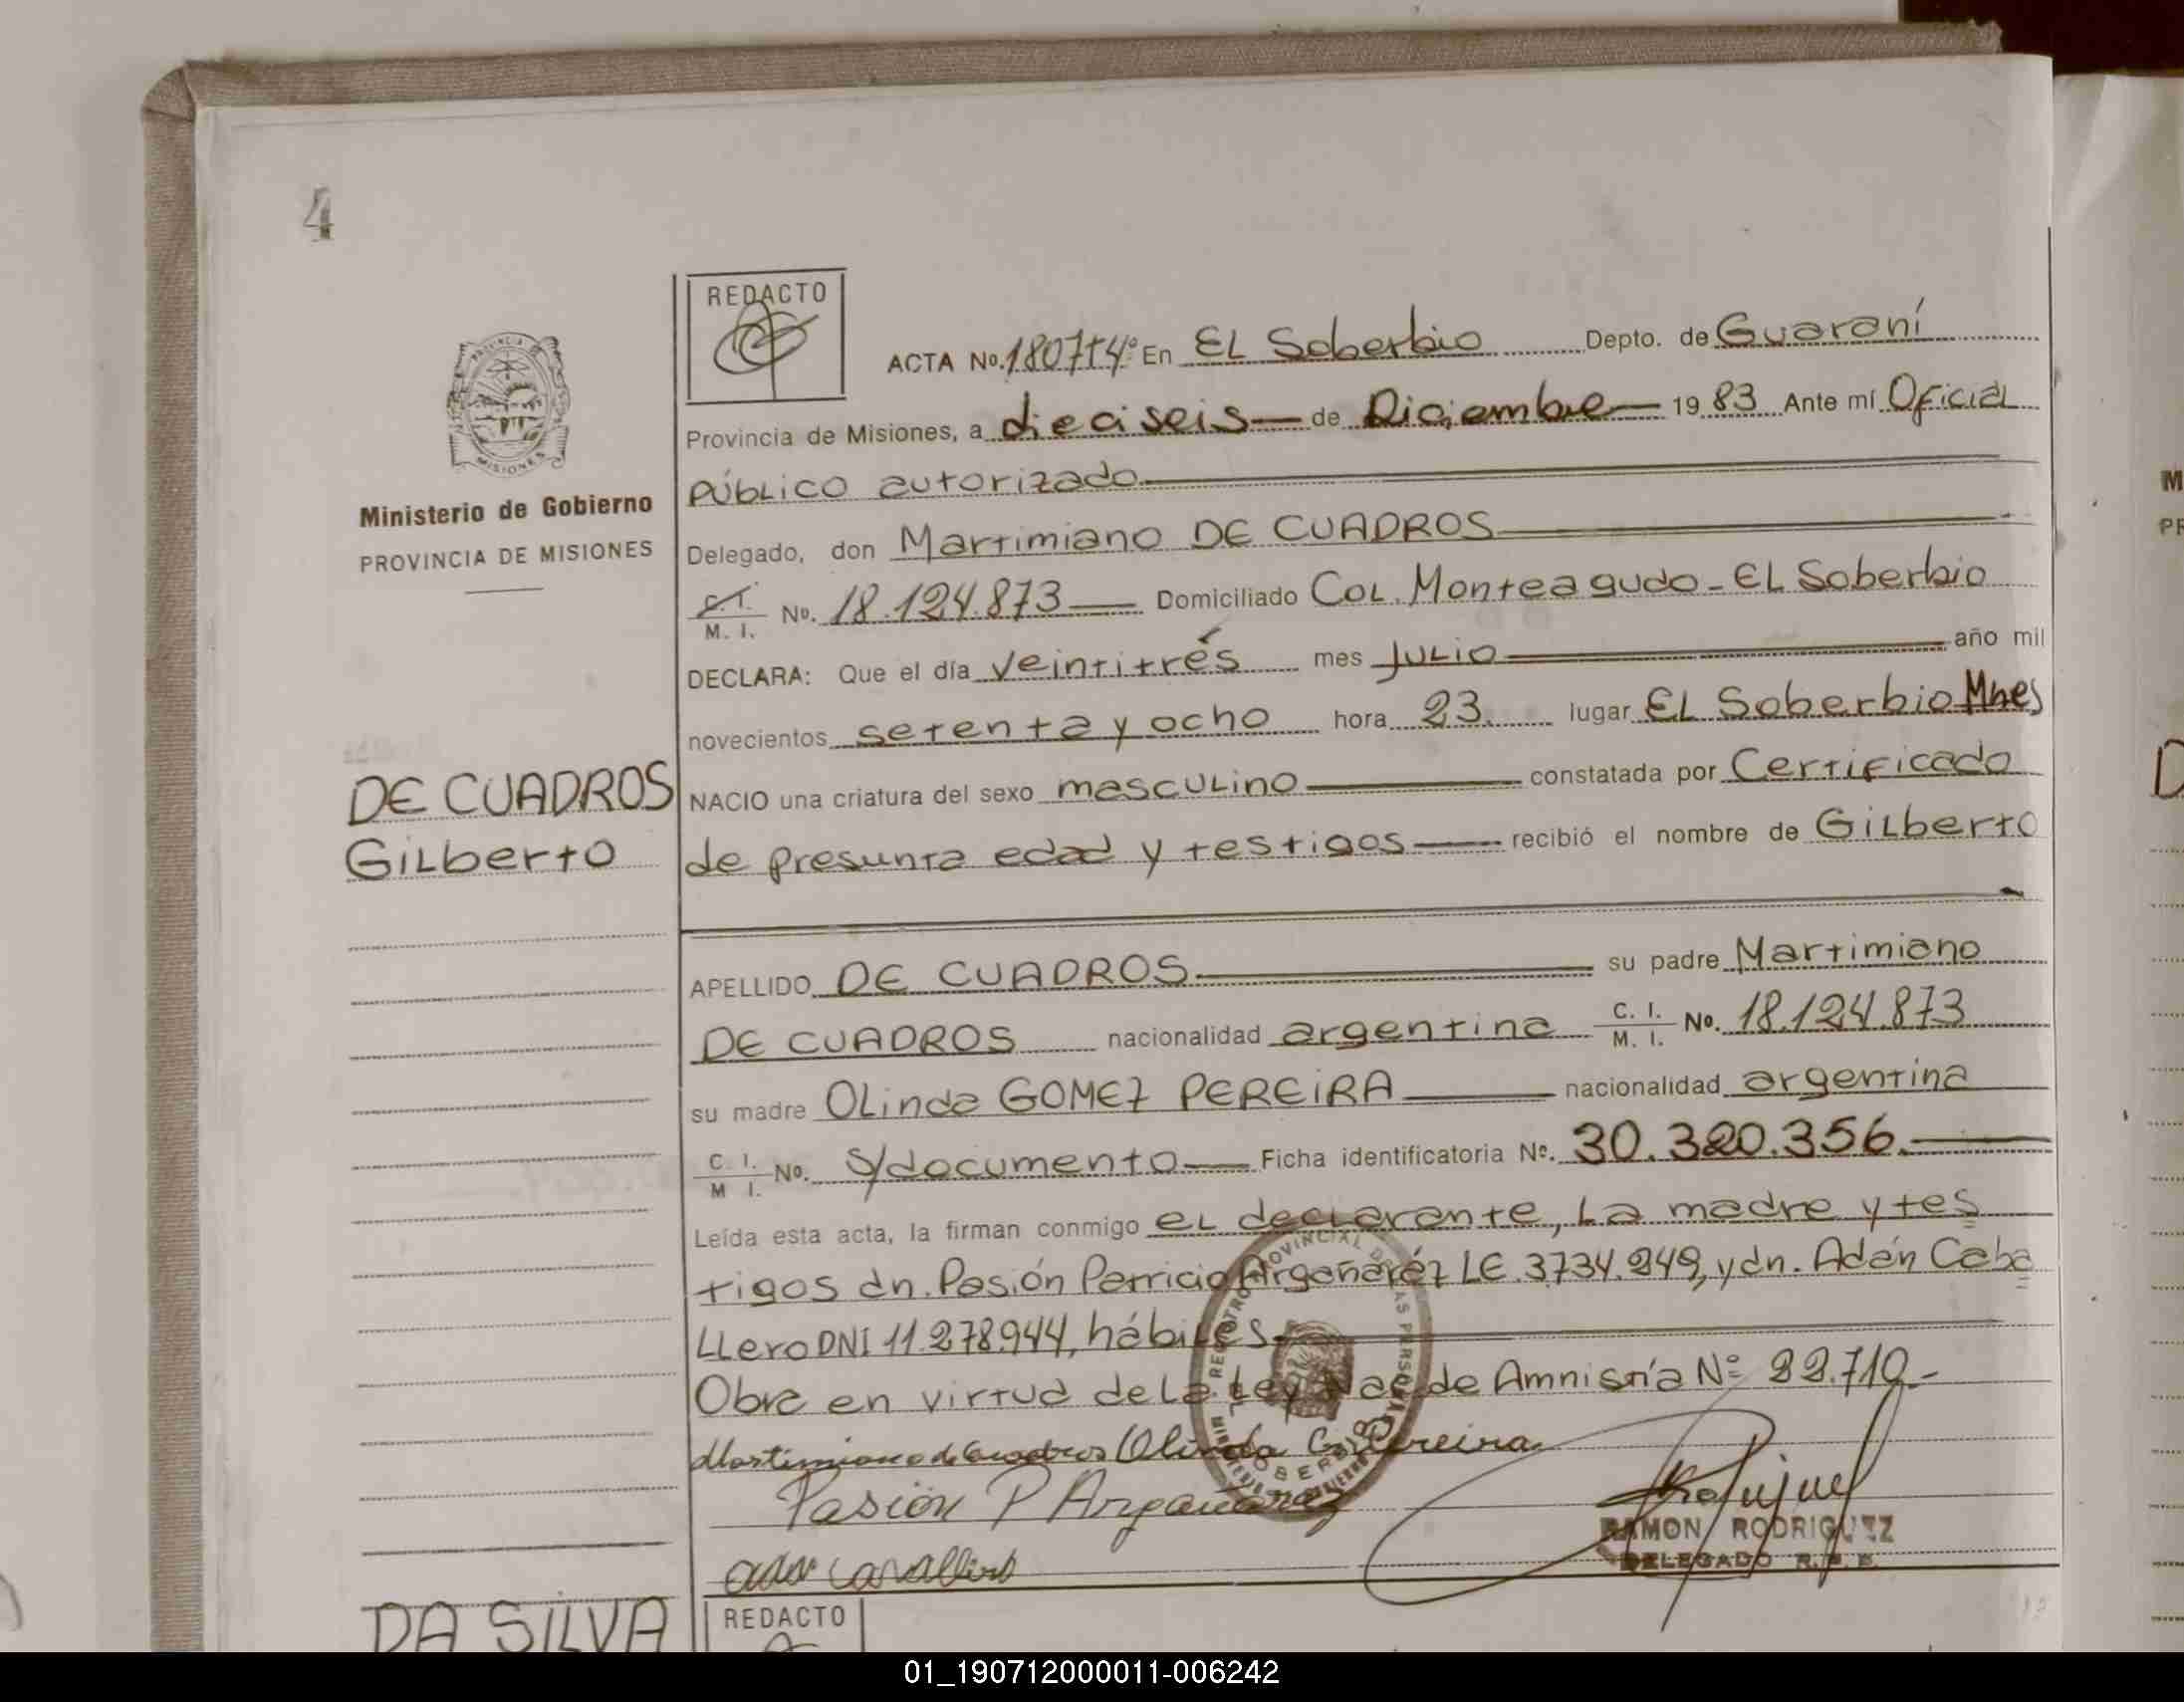 4
REDACTO
ACTA No. 1807T4º En EL Soberbio Depto. de Guaraní
Provincia de Misiones, a dieciseis de Diciembre 1983 Ante mí Oficial
PÚBLICO autorizado
Ministerio de Gobierno
PROVINCIA DE MISIONES
Delegado, don Martimiano DE CUADROS
C.I. M. I. No. 18.124.873 Domiciliado COL. Monteagudo - EL Soberbio
DECLARA: Que el día veintitrés mes JULIO año mil
novecientos setenta y ocho hora 23. lugar EL Soberbio Mnes
DE CUADROS
GiLberto
NACIO una criatura del sexo masculino constatada por Certificado
de presunta edad y testigos recibió el nombre de GiLberto
APELLIDO DE CUADROS su padre Martimiano
DE CUADROS nacionalidad argentina C. I. M. I. No. 18.124.873
su madre OLinda GOMEZ PEREIRA nacionalidad argentina
C. I. M I. No. S/documento Ficha identificatoria Nº. 30.320.356.
Leída esta acta, la firman conmigo el declarante, La madre y tes
tigos dn. Pasión Patricio Argañaréz LE. 3.734.249, y dn. Adán Caba
LLero DNI 11.278.944, hábiles
Obra en virtud de La Ley Nac. de Amnistía Nº 22.710.-
Martimiano de Cuadros Olinda G. Pereira
Pasión P Argañaraz
RAMON RODRIGUEZ
DELEGADO R.P.P.
DA SILVA
REDACTO
01_190712000011-006242